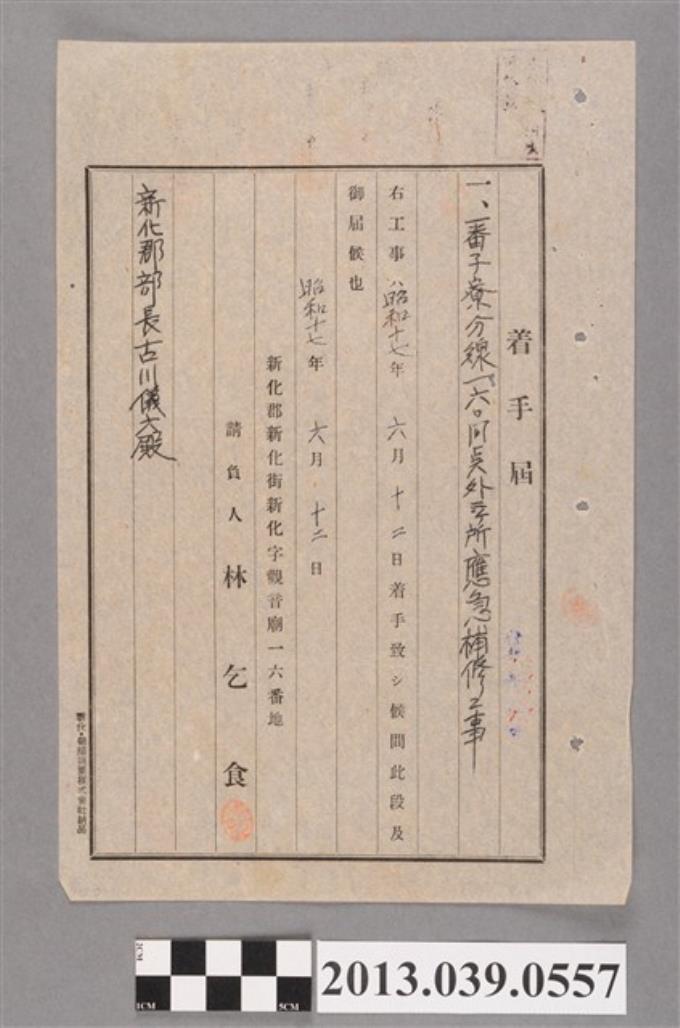 着手屆
一、番子寮分線一六〇間点外三ヶ所應急補修工事
右工事ハ昭和十七年六月十二日着手致シ候間此段及
御屆候也
昭和十七年六月十二日
新化郡新化街新化字觀音廟一六番地
請負人 林乞食
新化郡部長古川儀六殿
2CM
1CM
5CM
2013.039.0557